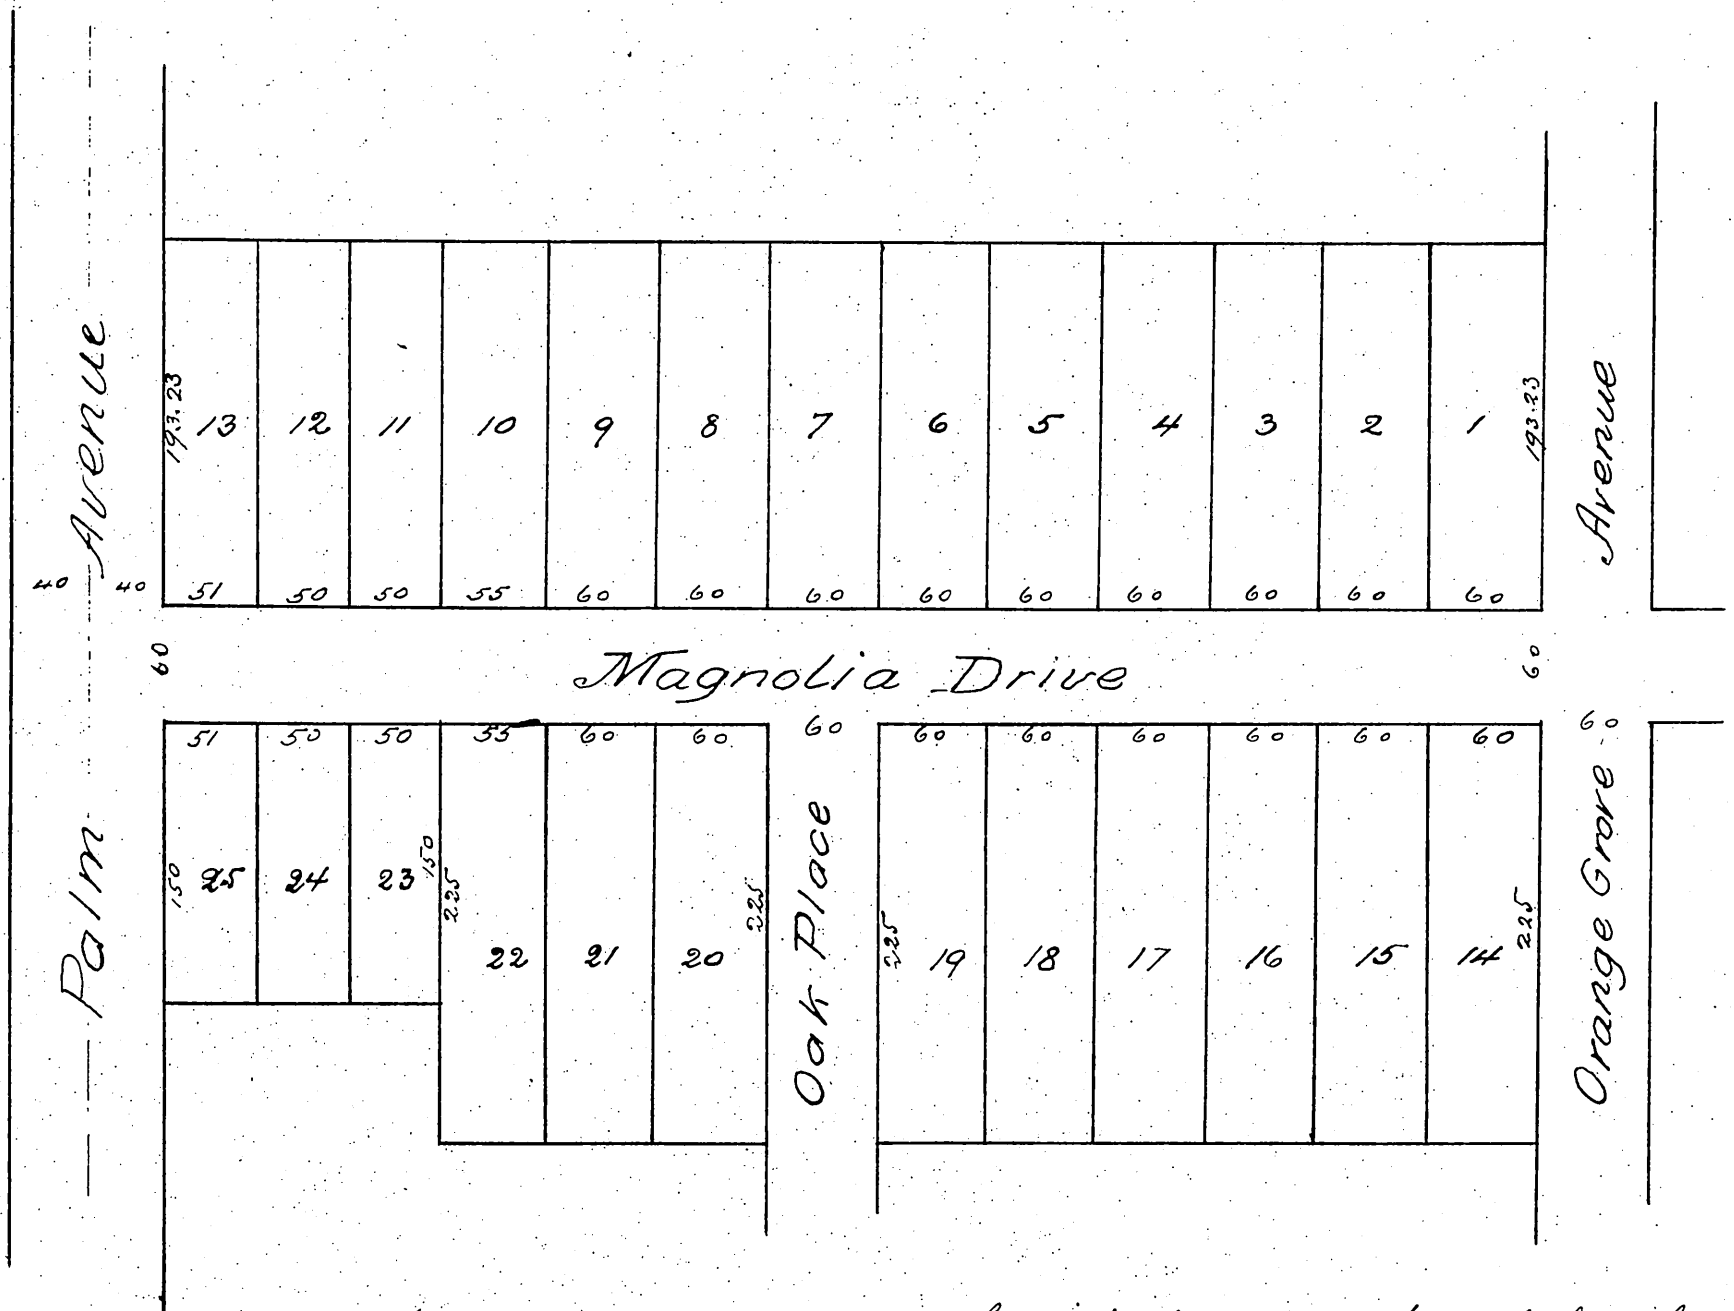 Palm Avenue
40 40
193.23
13 12 11 10 9 8 7 6 5 4 3 2 1
193.23
Avenue
51 50 50 55 60 60 60 60 60 60 60 60 60
60
Magnolia Drive
60
51 50 50 55 60 60 60 60 60 60 60 60 60
60
150 25 24 23 150
225 22 21 20 225
Oak Place
225 19 18 17 16 15 14 225
Orange Grove